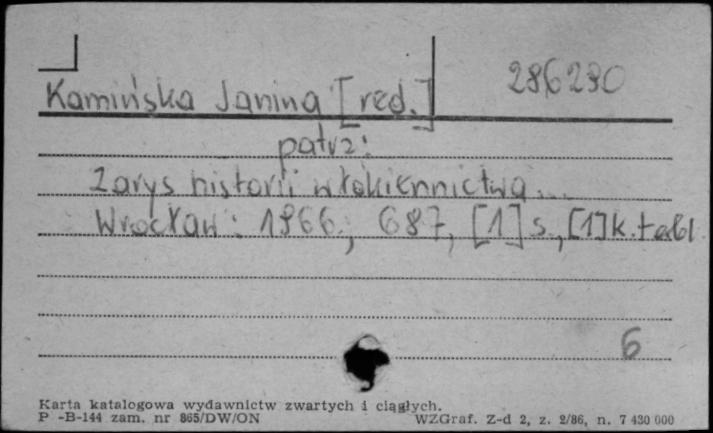 Kamińska Janina [red.] 286290
patrz:
Zarys historii włókiennictwa...
Wrocław: 1966, 687, [1] s., [1] k. tabl
6
Karta katalogowa wydawnictw zwartych i ciągłych.
P -B-144 zam. nr 865/DW/ON WZGraf. Z-d 2, z. 2/86, n. 7 430 000